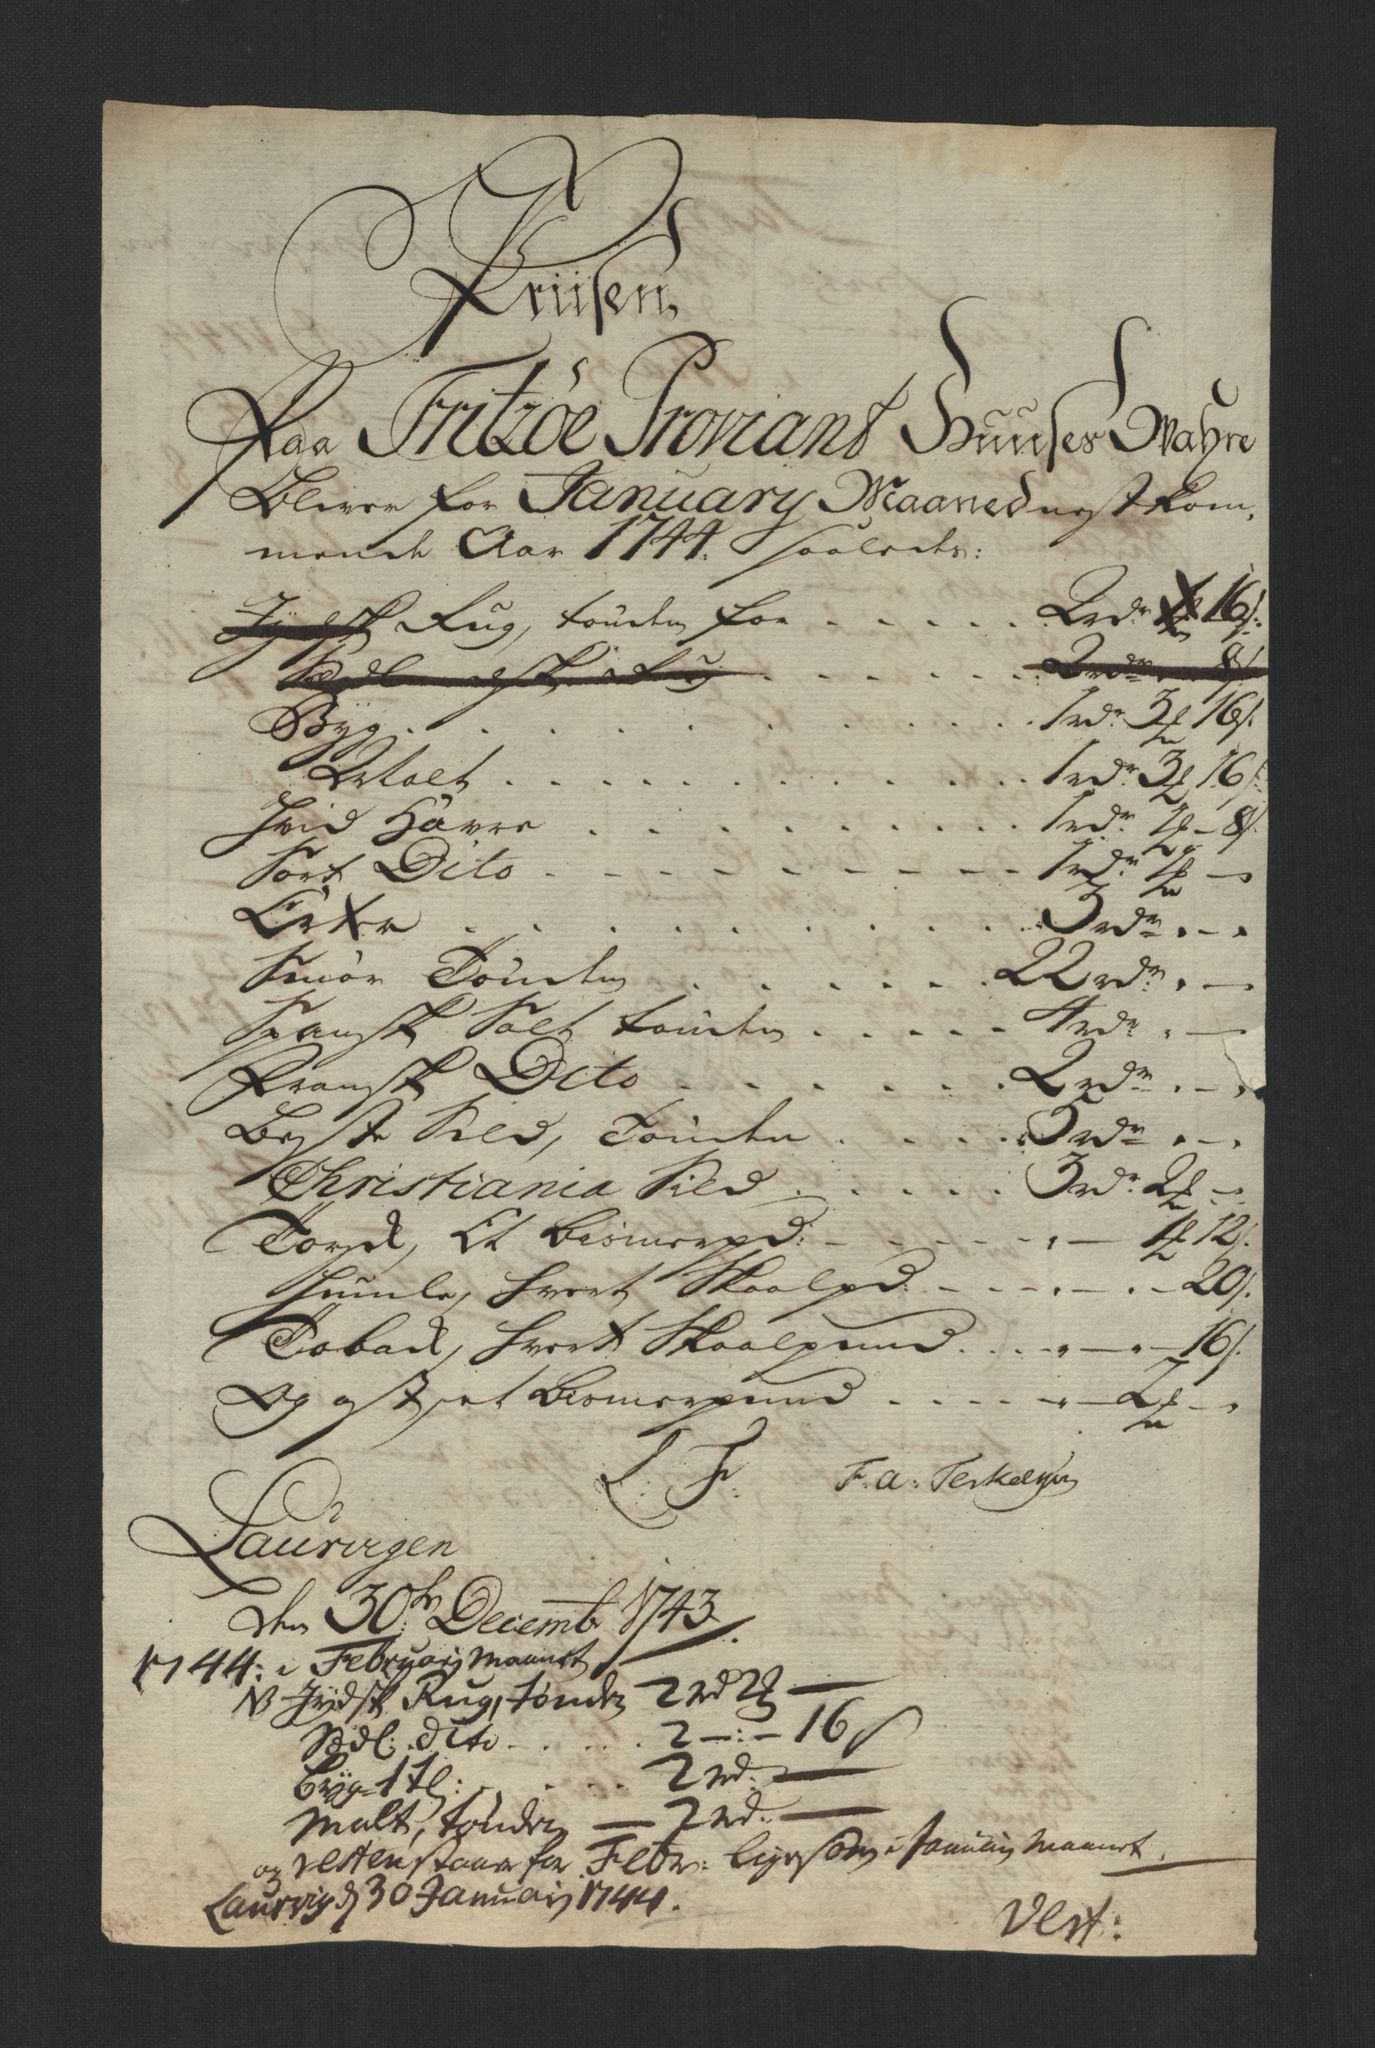 Priisen,
Paa Fritzöe Proviant Huuses Wahre
bliver for January Maaned nest kom,
mende Aar 1744. saaledes:
Jydsk Rug, tønden for . . . . . 2 rdr 16 s:
Sædl. Rug . . . . . . 2 rdr . 8 s
Byg . . . . . . . . . 1 rdr 3 ℔ 16 s.
Malt . . . . . . . . . 1 rdr 3 ℔ 16 s.
Hvid Havre . . . . . . . . 1 rdr 2 ℔ - 8 s.
Sort Dito . - . - - - - - - 1 rdr 2 ℔ - .
Erter . . . . . . . . . 3 rdr . - .
Smør Tönden . . . . . . 22 rdr . - .
Spansk Salt tönden . . . . 4 rdr . -
Fransk Dito . . . . . . 2 rdr . - .
Beste Sild, Tönden . . . . 5 rdr . - .
Christiania Sild . . . . . 3 rdr 2 ℔ - .
Torsk, Et bismerpd: - - - - - . - 1 ℔ 12 s.
Humle, hvert Skaalpd: - - - . - . - 20 s.
Toback, hvert Skaalpund . . . . - . - 16 s.
Og ost, et bismerpund . . . . . - 2 ℔ - .
L: F: F: A: Terkelsen
Laurvigen
den 30te Decembr 1743.
1744: i Februarij Maanet
NB Jydsk Rug, tønden 2 rd 2 ℔ —
Sædl: dito . . . . . 2 - : - 16 s
Byg 1 tl: . . . . . 2 rd: —
Malt, tønden — 2 rd: —
og resten staar for Febr: ligesom i Januarij Maanet.
Laurvig d 30 Januarij 1744.
Vert: